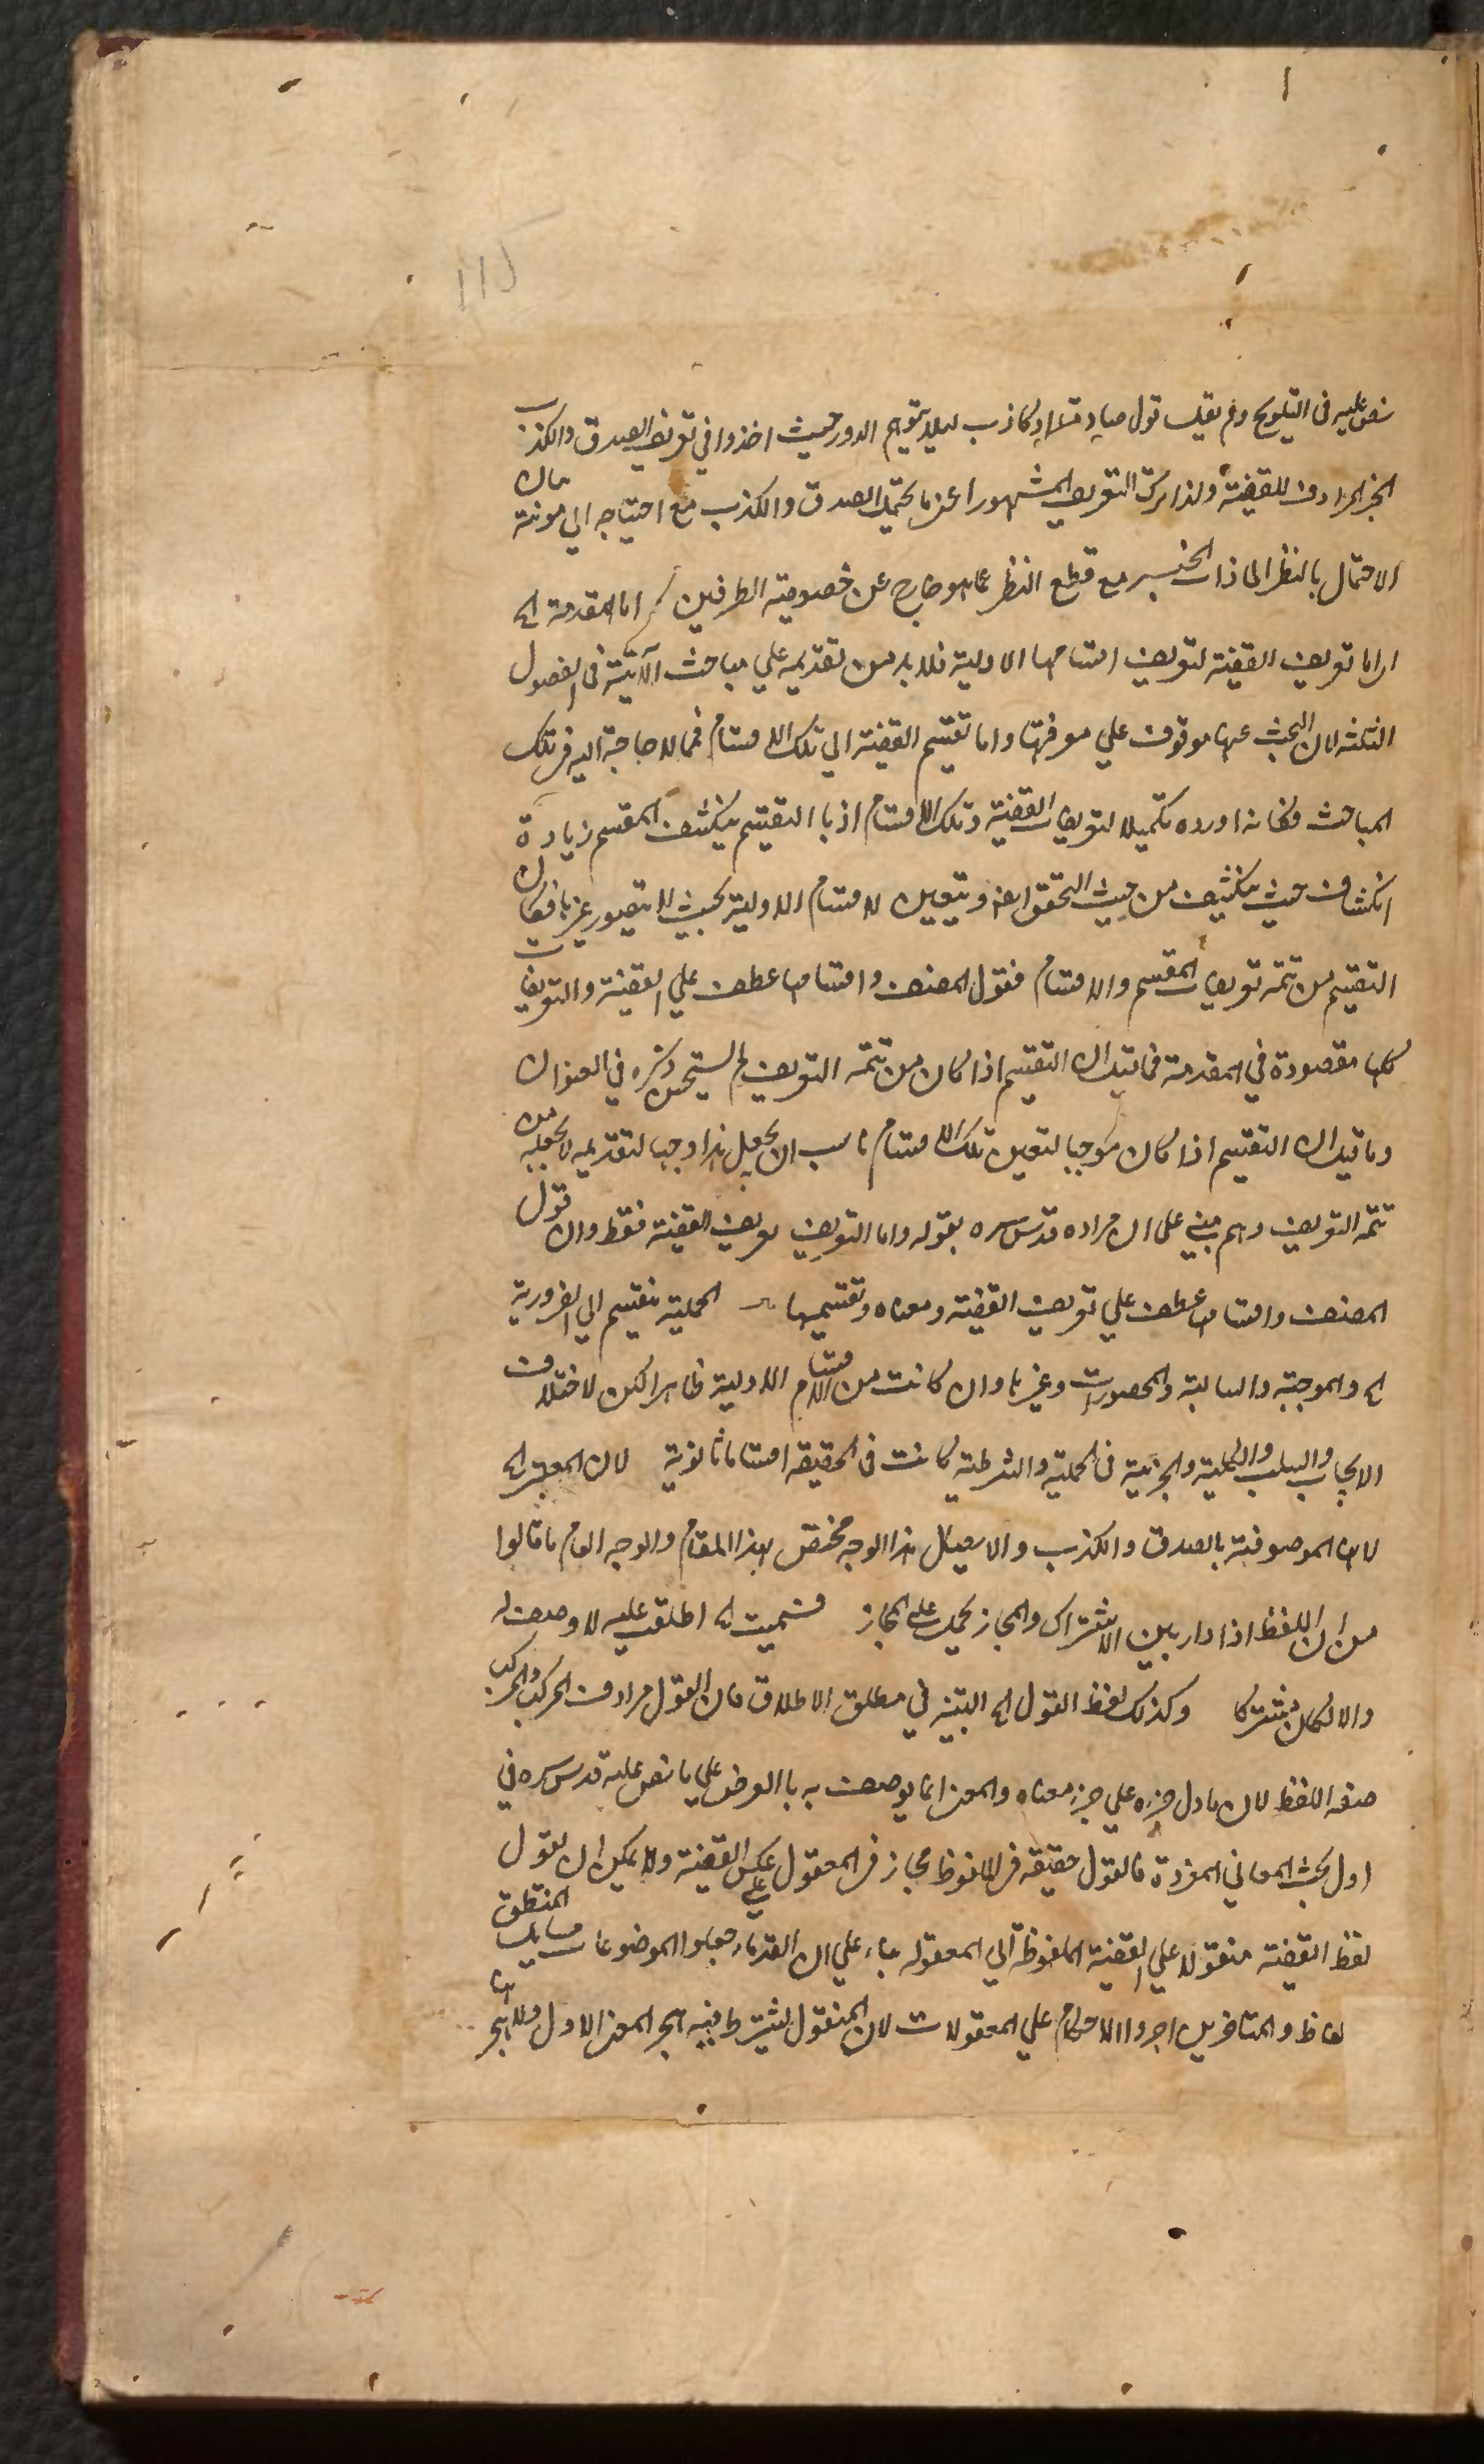 نص عليه فى التلويح ولم يقل قول صادق او كاذب لئلا يتوهم الدور حيث اخذوا في تعريف الصدق والكذب
الخبر المرادف للقضية ولذا ترك التعريف المشهور اعنى ما يحتمل الصدق والكذب مع احتياجه الى مونة بيان
الاحتمال بالنظر الى ذات الخبر مع قطع النظر عما هو خارج عن خصوصية الطرفين اما المقدمة الخ
اى اما تعريف القضية لتعريف اقسامها الاولية فلا بد من تقديمه علي مباحث الآتية فى الفصول
الثلثة لان البحث عنها موقوف علي معرفتها واما تقسيم القضية الي تلك الاقسام فمما لا حاجة اليه فى تلك
المباحث فكانه اورده تكميلا لتعريفات القضية وتلك الاقسام اذ با التقسيم ينكشف المقسم زيادة
انكشاف حيث ينكشف من حيث التحقق ايضا ويتعين الاقسام الاولية بحيث لا يتصور غيرها فكان
التقسيم من تتمة تعريفات المقسم والاقسام فقول المصنف واقسامها عطف علي القضية والتعريفات
كلها مقصودة في المقدمة فما قيل ان التقسيم اذا كان من تتمة التعريف لم يستحسن ذكره في العنوان
وما قيل ان التقسيم اذا كان موجبا لتعين تلك الاقسام ناسب ان يجعل هذا وجها لتقديمه لا لجعله من
تتمة التعريف وهم مبني على ان مراده قدس سره بقوله واما التعريف تعريف القضية فقط وان قول
المصنف واقسامها عطف علي تعريف القضية ومعناه وتقسيمها الحملية ينقسم الي الضرورية
الخ والموجبة والسالبة والمحصورات وغيرها وان كانت من الاقسام الاولية ظاهرا لكن لاختلاف
الايجاب والسلب والكلية والجزئية فى الحملية والشرطية كانت فى الحقيقة اقساما ثانوية لان المعتبر الخ
لان الموصوفية بالصدق والكذب والا هذا الوجه مختص بهذا المقام والوجه العام ما قالوا
من ان اللفظ اذا دار بين الاشتراك والمجاز يحمل على المجاز فسميت الخ اطلقت عليه لا وضعت له
والا لكان مشتركا وكذلك لفظ القول الخ التشبيه في مطلق الاطلاق فان القول مرادف المركب والمركب
صفة اللفظ لان ما دل جزءه علي جزء معناه والمعنى انما يوصف به با العرض علي ما نص عليه قدس سره في
اول بحث المعاني المفردة فالقول حقيقة فى الملفوظ مجاز فى المعقول علي عكس القضية ولا يمكن ان يقول
لفظ القضية منقولا علي القضية الملفوظة الي المعقولة بناء علي ان القدماء جعلوا الموضوعات مسايل المنطق
لفاظ والمتاخرين اجروا الاحكام علي المعقولات لان المنقول يشترط فيه هجر المعنى الاول ولا هجر